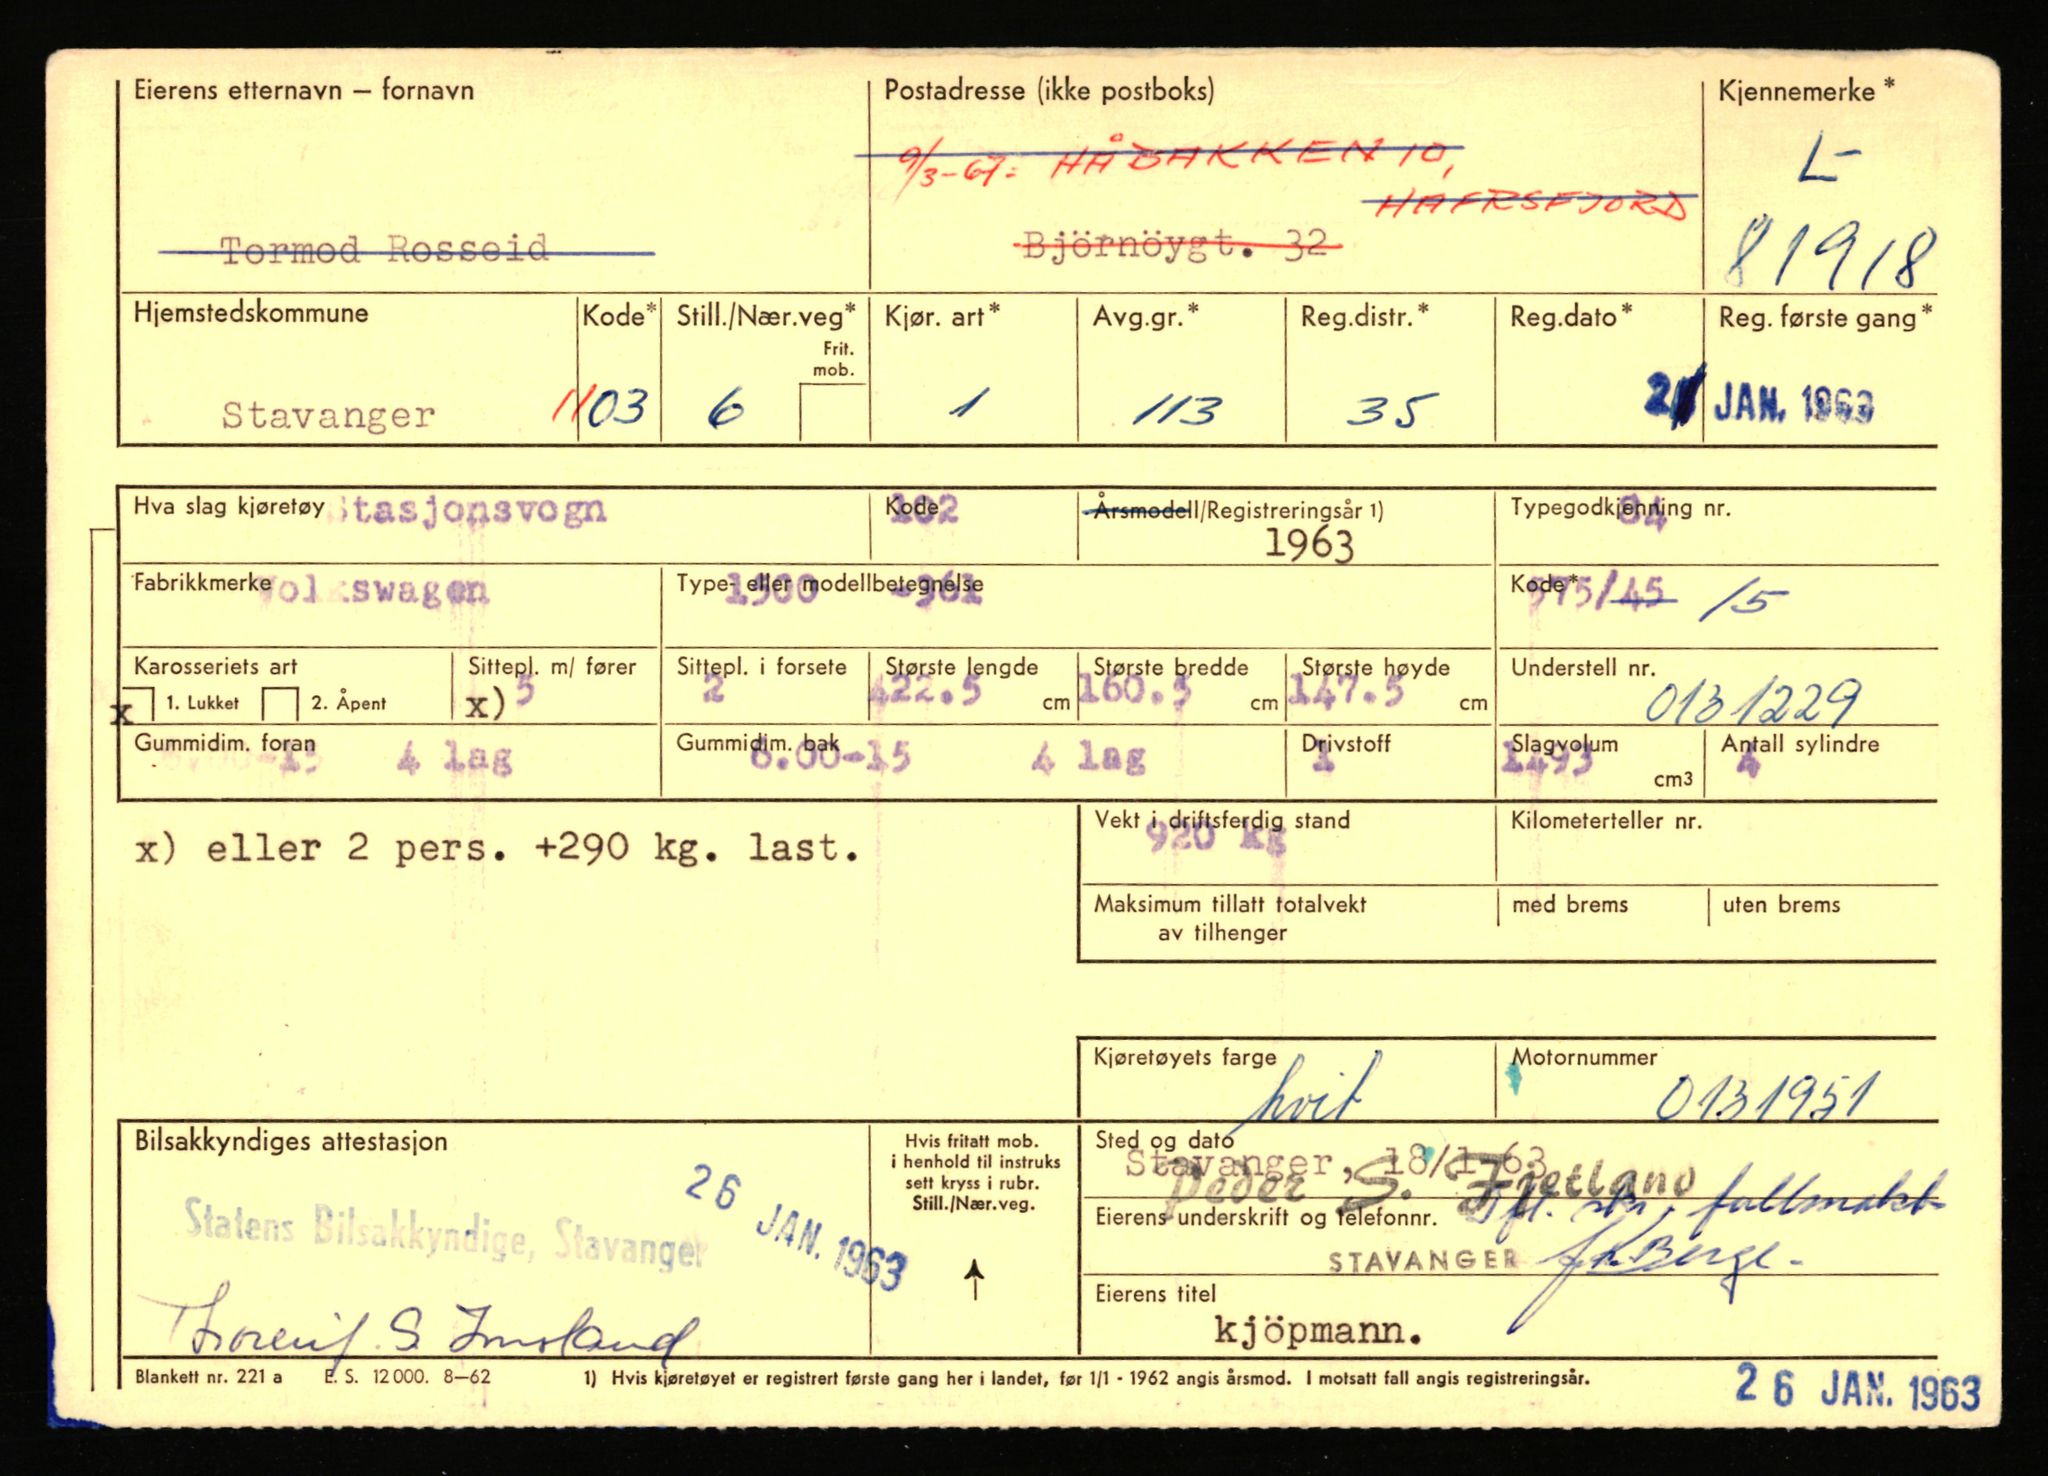 Eierens etternavn – fornavn
Postadresse (ikke postboks)
Kjennemerke*
9/3-67: HÅBAKKEN 10,
HAFRSFJORD
L-
Tormod Rosseid
Björnöygt. 32
81918
Hjemstedskommune
Kode*
Still./Nær.veg*
Frit. mob.
Kjør. art*
Avg.gr.*
Reg.distr.*
Reg.dato*
Reg. første gang*
Stavanger
1103
6
1
113
35
JAN. 1963
Hva slag kjøretøy Stasjonsvogn
Kode 102
Årsmodell/Registreringsår 1)
1963
Typegodkjenning nr. 84
Fabrikkmerke Volkswagen
Type- eller modellbetegnelse 1500 -361
Kode* 575/45 15
Karosseriets art
x 1. Lukket 2. Åpent
Sittepl. m/ fører
x) 5
Sittepl. i forsete
2
Største lengde
422.5 cm
Største bredde
160.5 cm
Største høyde
147.5 cm
Understell nr.
0131229
Gummidim. foran
6.00-15 4 lag
Gummidim. bak
6.00-15 4 lag
Drivstoff
1
Slagvolum
1493 cm3
Antall sylindre
4
x) eller 2 pers. +290 kg. last.
Vekt i driftsferdig stand
920 kg
Kilometerteller nr.
Maksimum tillatt totalvekt
av tilhenger
med brems
uten brems
Kjøretøyets farge
hvit
Motornummer
0131951
Bilsakkyndiges attestasjon
Statens Bilsakkyndige, Stavanger
26 JAN. 1963
Hvis fritatt mob.
i henhold til instruks
sett kryss i rubr.
Still./Nær.veg.
Sted og dato
Stavanger, 18/1-63
Peder S. Fjetland
Eierens underskrift og telefonnr.
ifl. skr. fullmakt
STAVANGER
Berge.
S. Imsland
Eierens titel
kjöpmann.
Blankett nr. 221 a E. S. 12 000. 8–62
1) Hvis kjøretøyet er registrert første gang her i landet, før 1/1 - 1962 angis årsmod. I motsatt fall angis registreringsår.
26 JAN. 1963